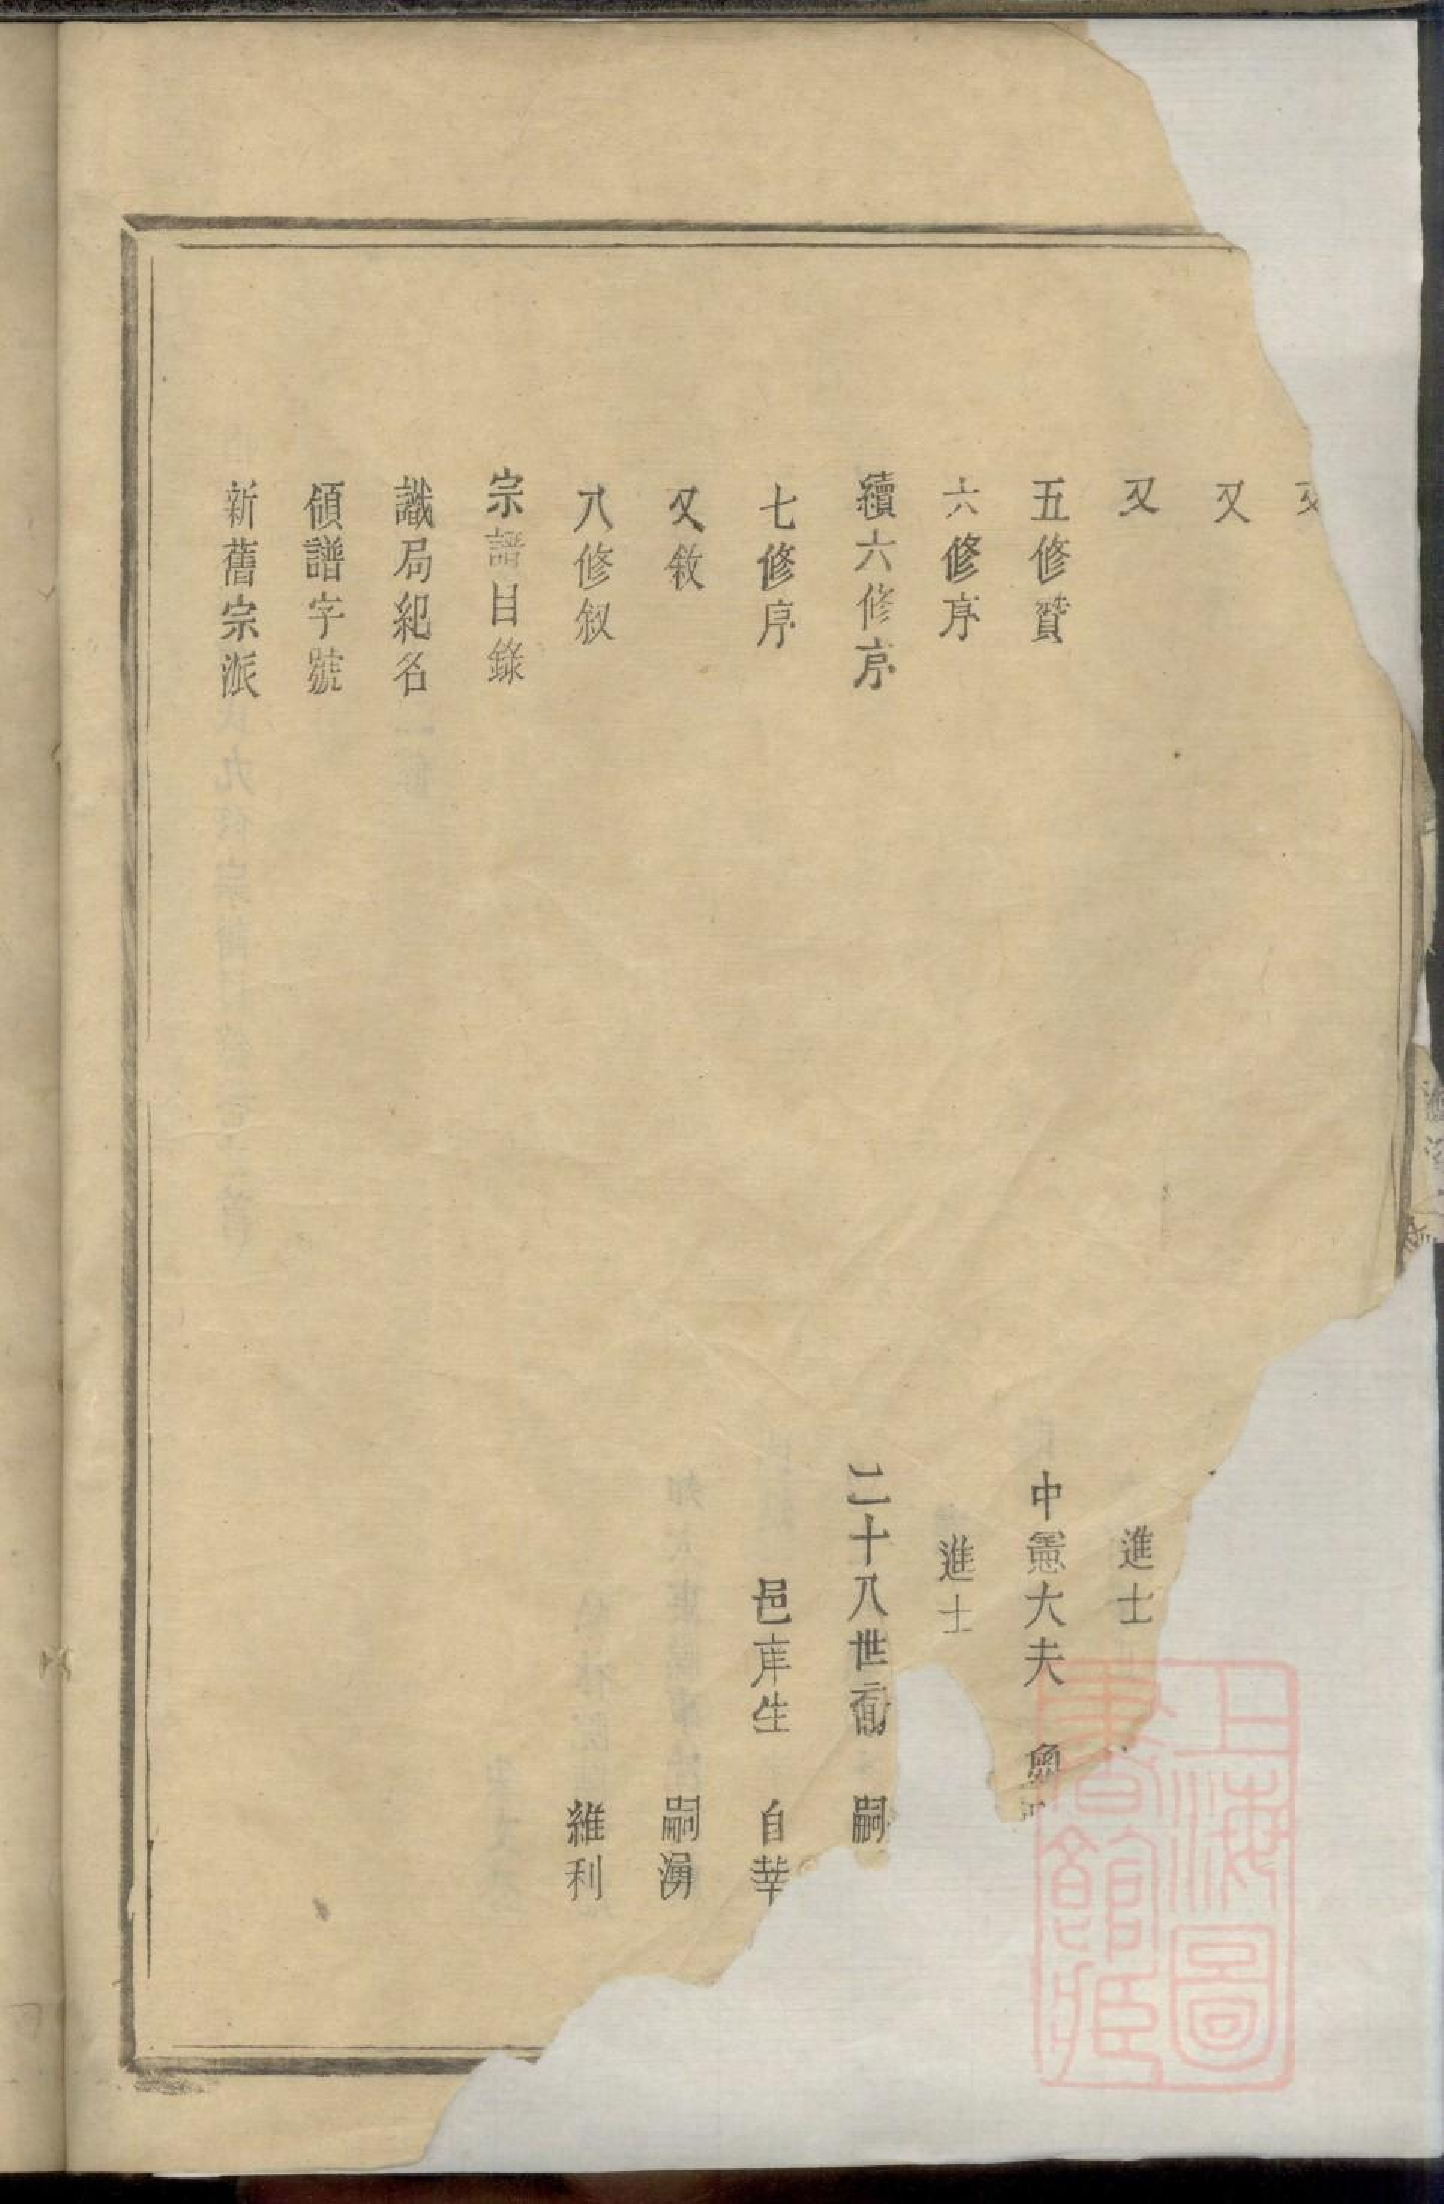 又
又
又 進士
五修贊 中憲大夫 魚
六修序 進士
續六修序 二十八世裔 嗣
七修序 邑庠生 自莘
又敘 嗣湧
八修叙 維利
宗譜目錄
譏局紀名
領譜字號
新舊宗派
上海圖書館藏